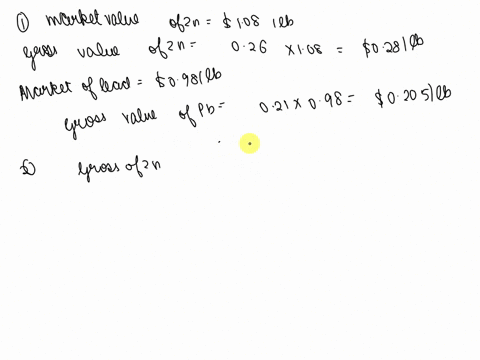 ① market value of zn = $1.08 lb
gross value of zn = 0.26 × 1.08 = $0.28/lb
Market of lead = $0.98/lb
gross value of Pb = 0.21 × 0.98 = $0.205/lb
② gross of zn